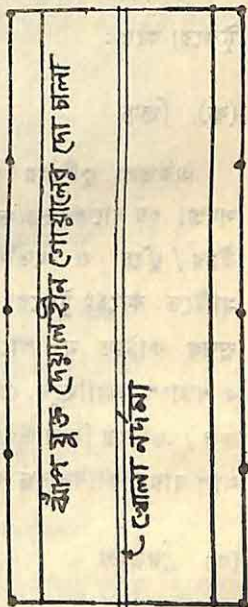 ঝাঁপ যুক্ত দেয়ালহীন গোয়ালের দো চালা
খোলা নর্দমা